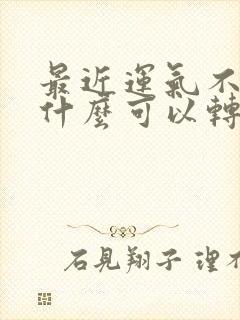 最近運氣不
什麼可以轉
石見翔子 理不